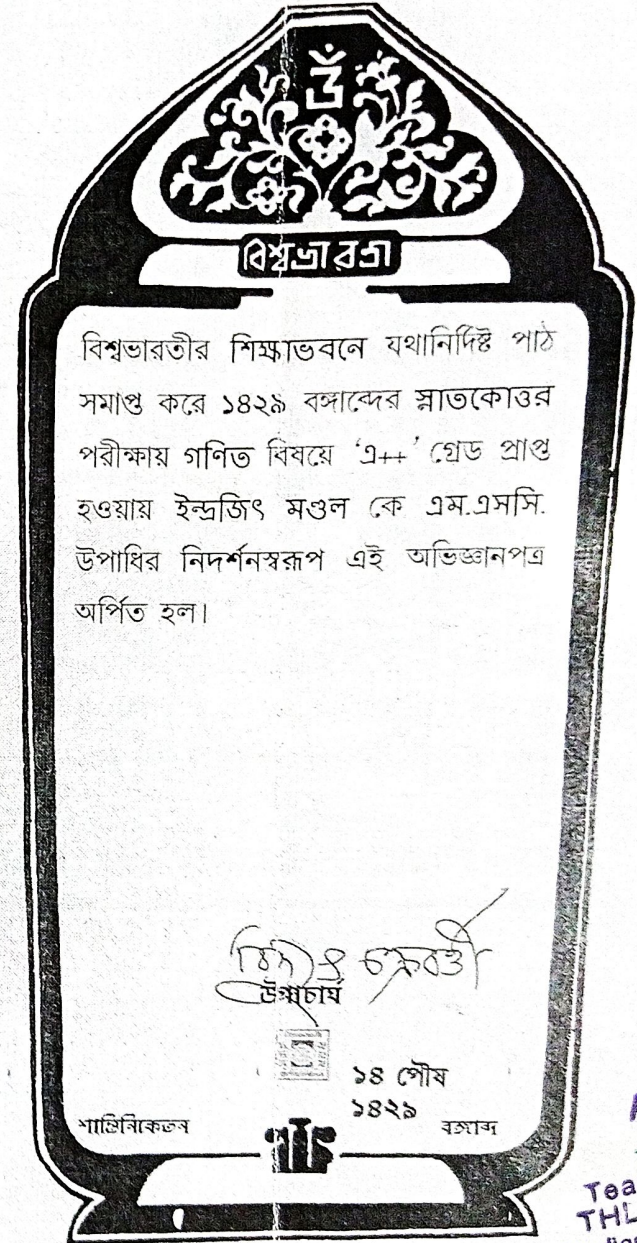 ওঁ
বিশ্বভারতী
বিশ্বভারতীর শিক্ষাভবনে যথানির্দিষ্ট পাঠ
সমাপ্ত করে ১৪২৯ বঙ্গাব্দের স্নাতকোত্তর
পরীক্ষায় গণিত বিষয়ে ‘এ++’ গ্রেড প্রাপ্ত
হওয়ায় ইন্দ্রজিৎ মণ্ডল কে এম.এসসি.
উপাধির নিদর্শনস্বরূপ এই অভিজ্ঞানপত্র
অর্পিত হল।
চক্রবর্তী
উপাচার্য
১৪ পৌষ
১৪২৯
শান্তিনিকেতন বঙ্গাব্দ